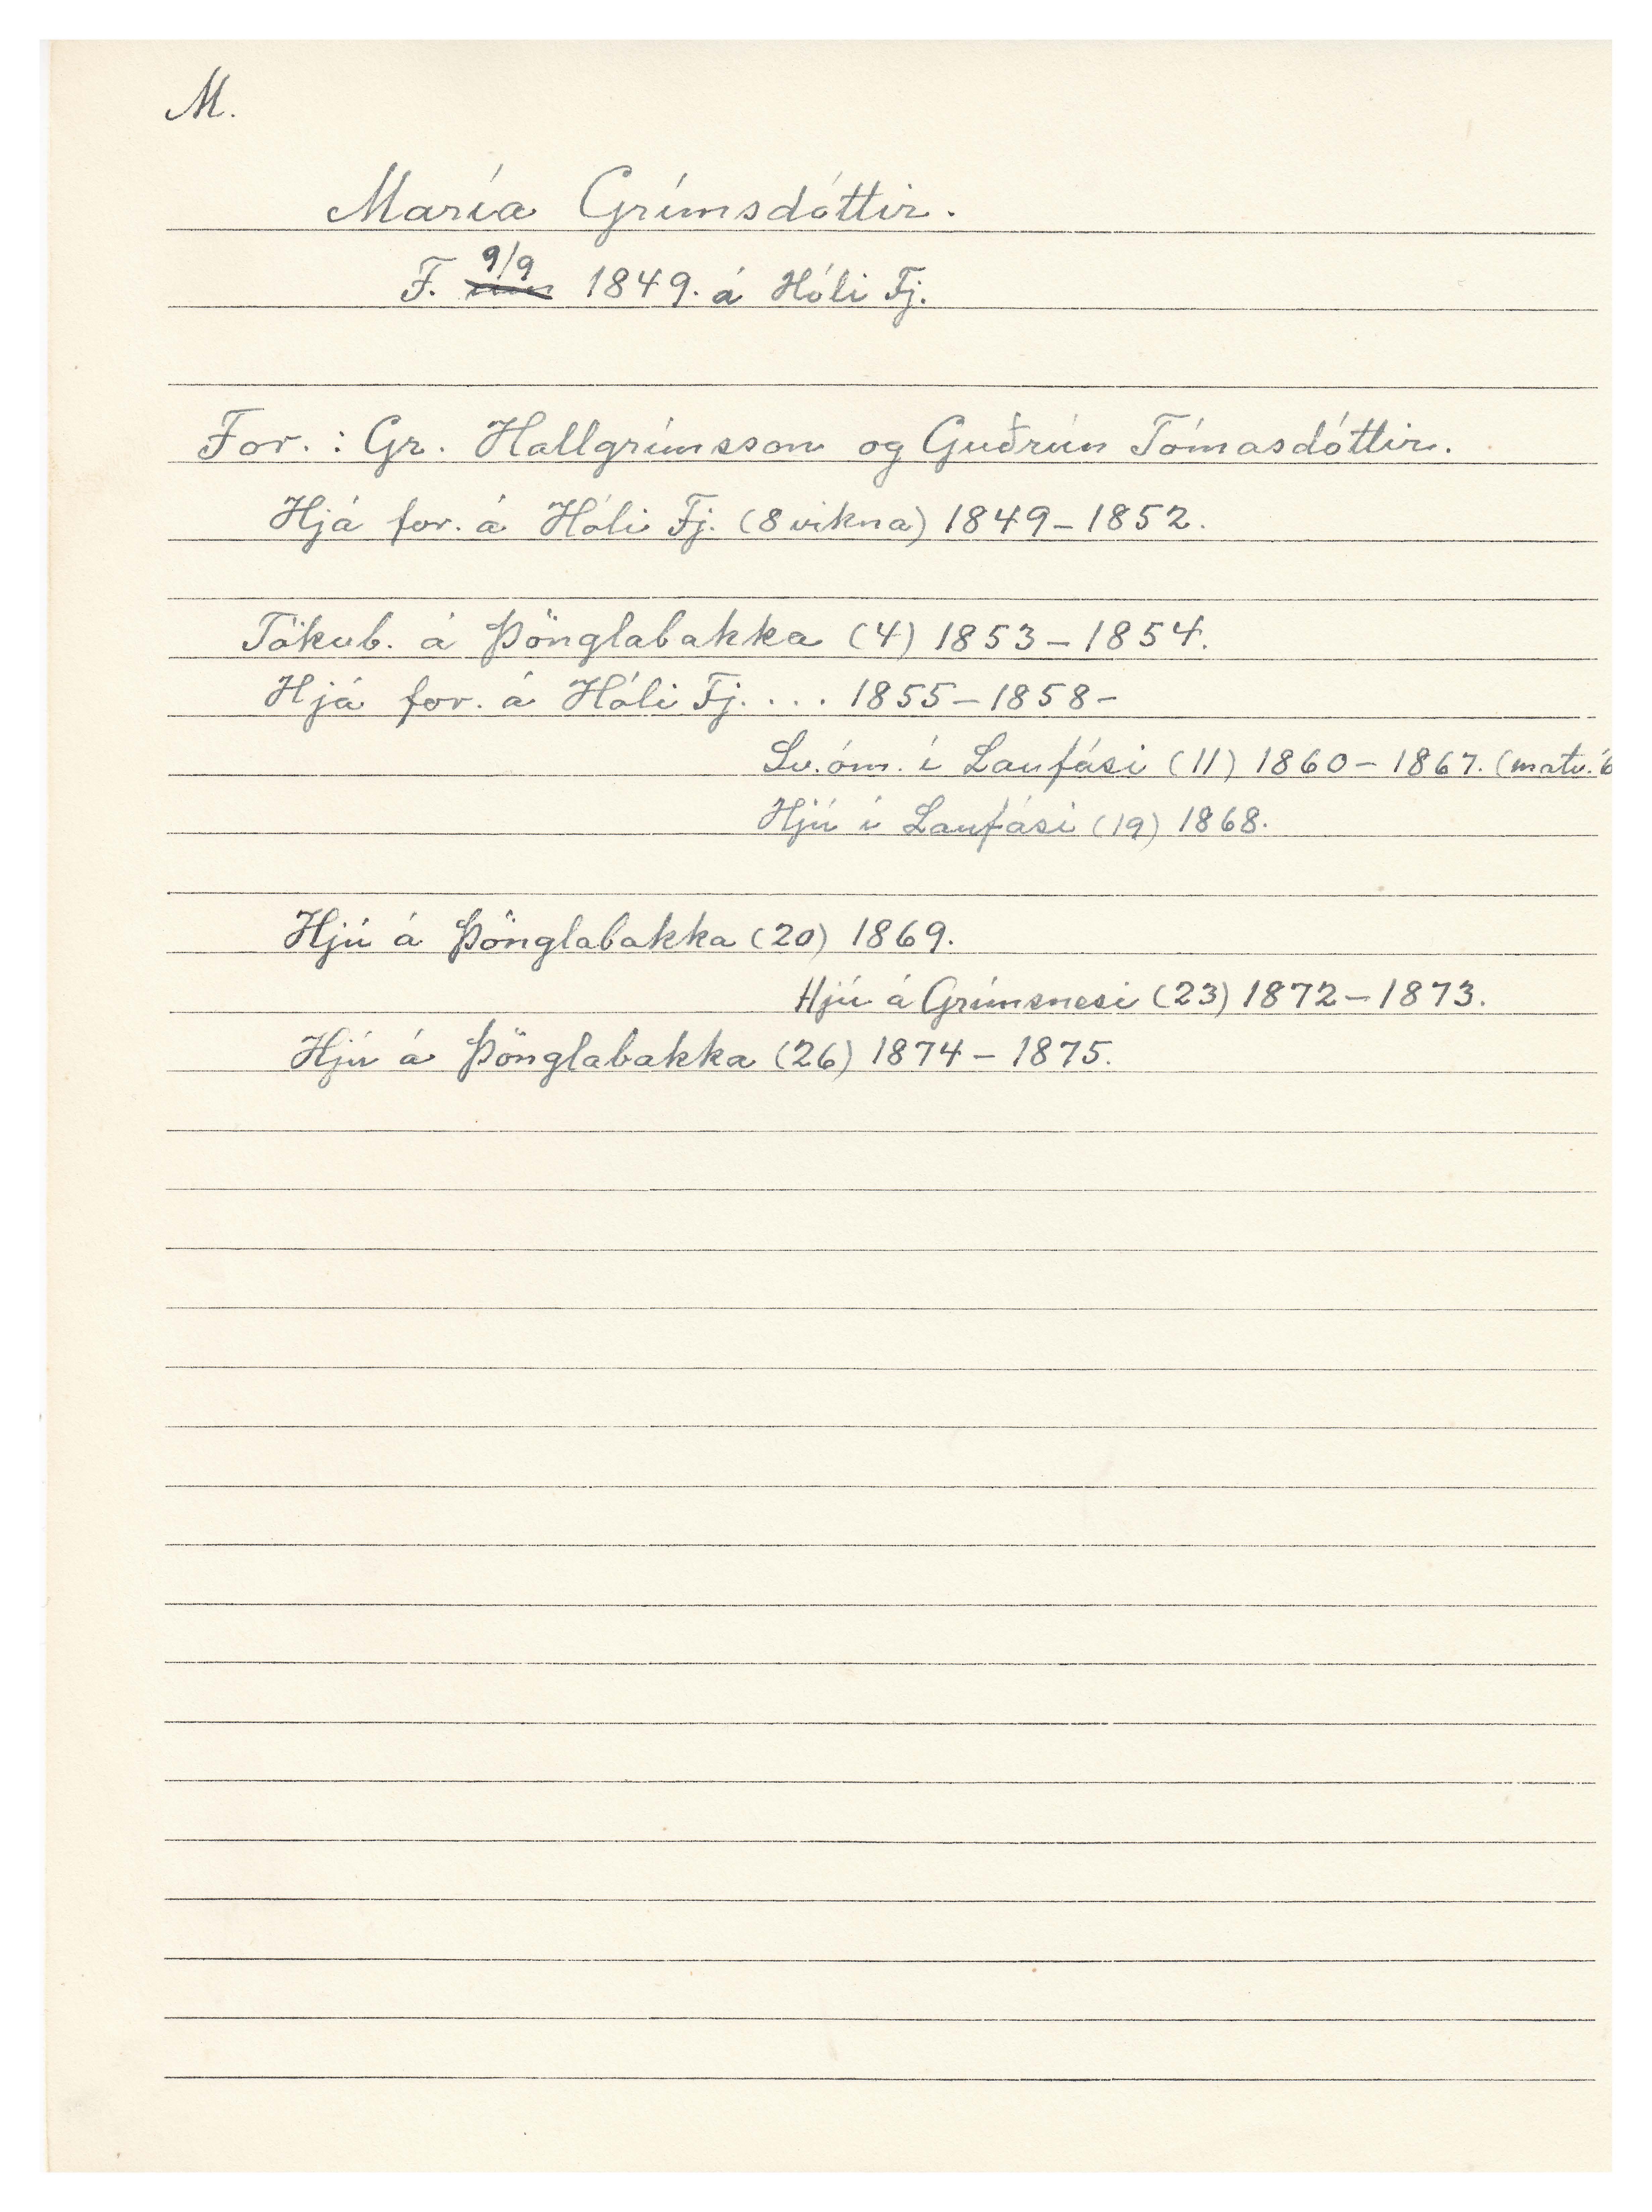 M.
María Grímsdóttir.
F. 9/9 1849. á Hóli Fj.
For. : Gr. Hallgrímsson og Guðrún Tómasdóttir.
Hjá for. á Hóli Fj. (8 vikna) 1849-1852.
Tökub. á Þönglabakka (4) 1853-1854.
Hjá for. á Hóli Fj. ... 1855-1858-
Sv.óm. í Laufási (11) 1860-1867. (matv.
Hjú í Laufási (19) 1868.
Hjú á Þönglabakka (20) 1869.
Hjú á Grímsnesi (23) 1872-1873.
Hjú á Þönglabakka (26) 1874-1875.